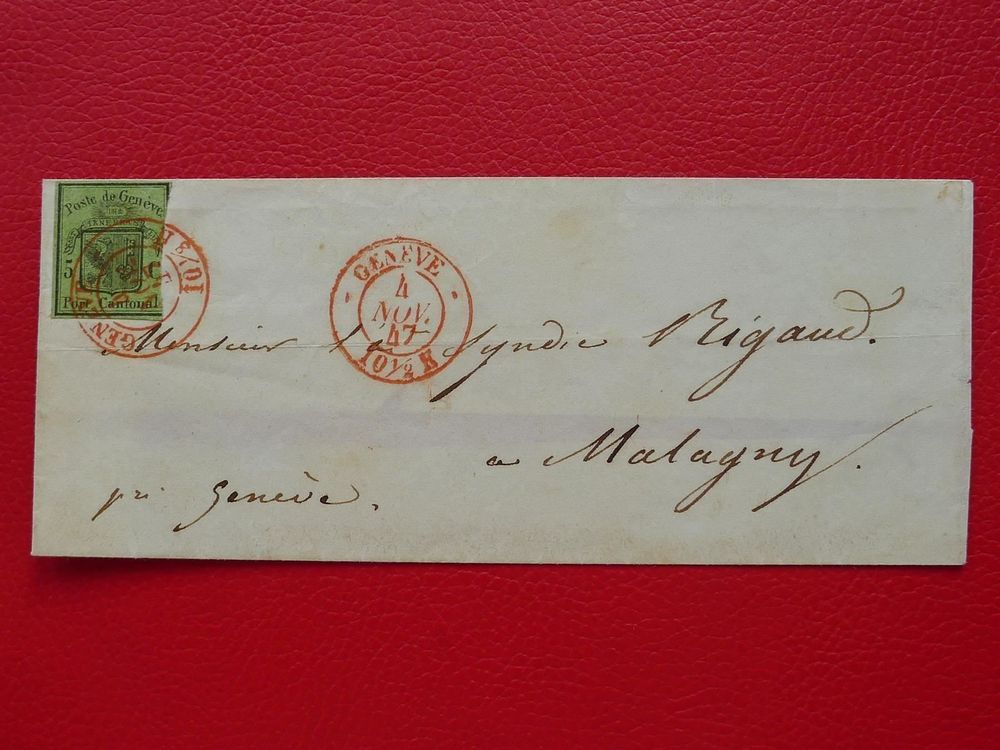 Poste de Genève.
5 C.
Port Cantonal.
GENÈVE
4
NOV.
47
10½ M
Monsieur le Syndic Rigaud.
a Malagny.
près Genève.